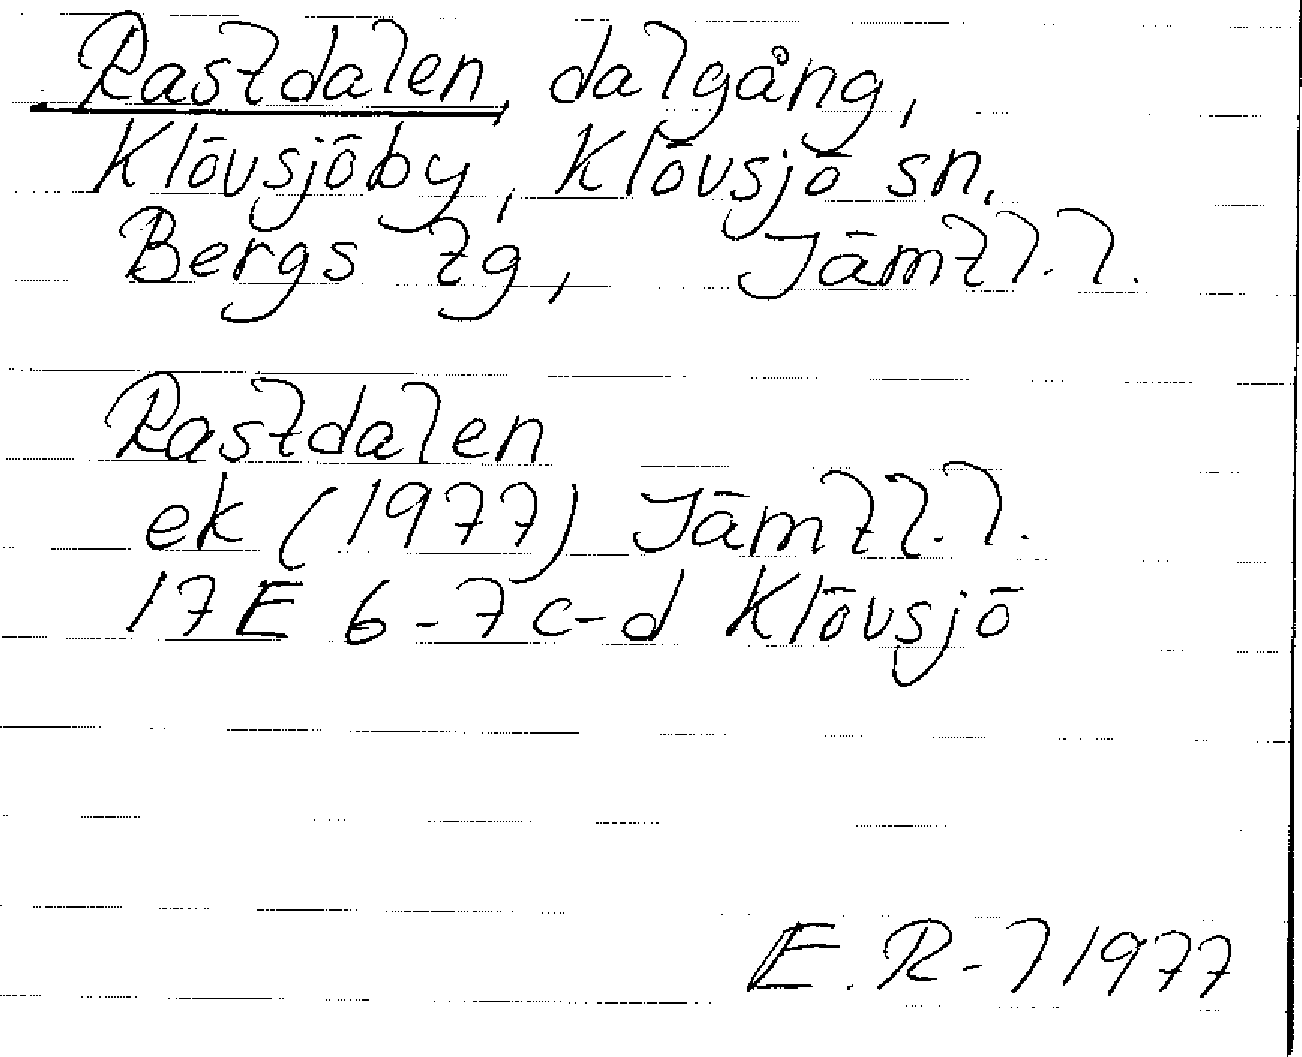 Rastdalen, dalgång,
Klövsjöby, Klövsjö sn.
Bergs tg, Jämtl.l.
Rastdalen
ek (1977) Jämtl.l.
17E 6-7c-d Klövsjö
E.R-l 1977